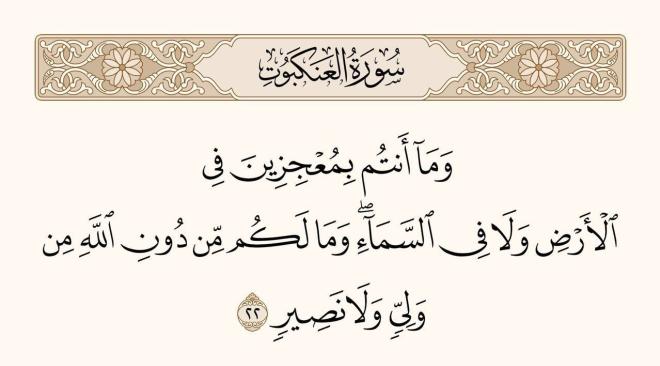 سُورَةُ العَنكَبُوتِ
وَمَآ أَنتُم بِمُعْجِزِينَ فِى
ٱلْأَرْضِ وَلَا فِى ٱلسَّمَآءِ ۖ وَمَا لَكُم مِّن دُونِ ٱللَّهِ مِن
وَلِىٍّ وَلَا نَصِيرٍ ٢٢